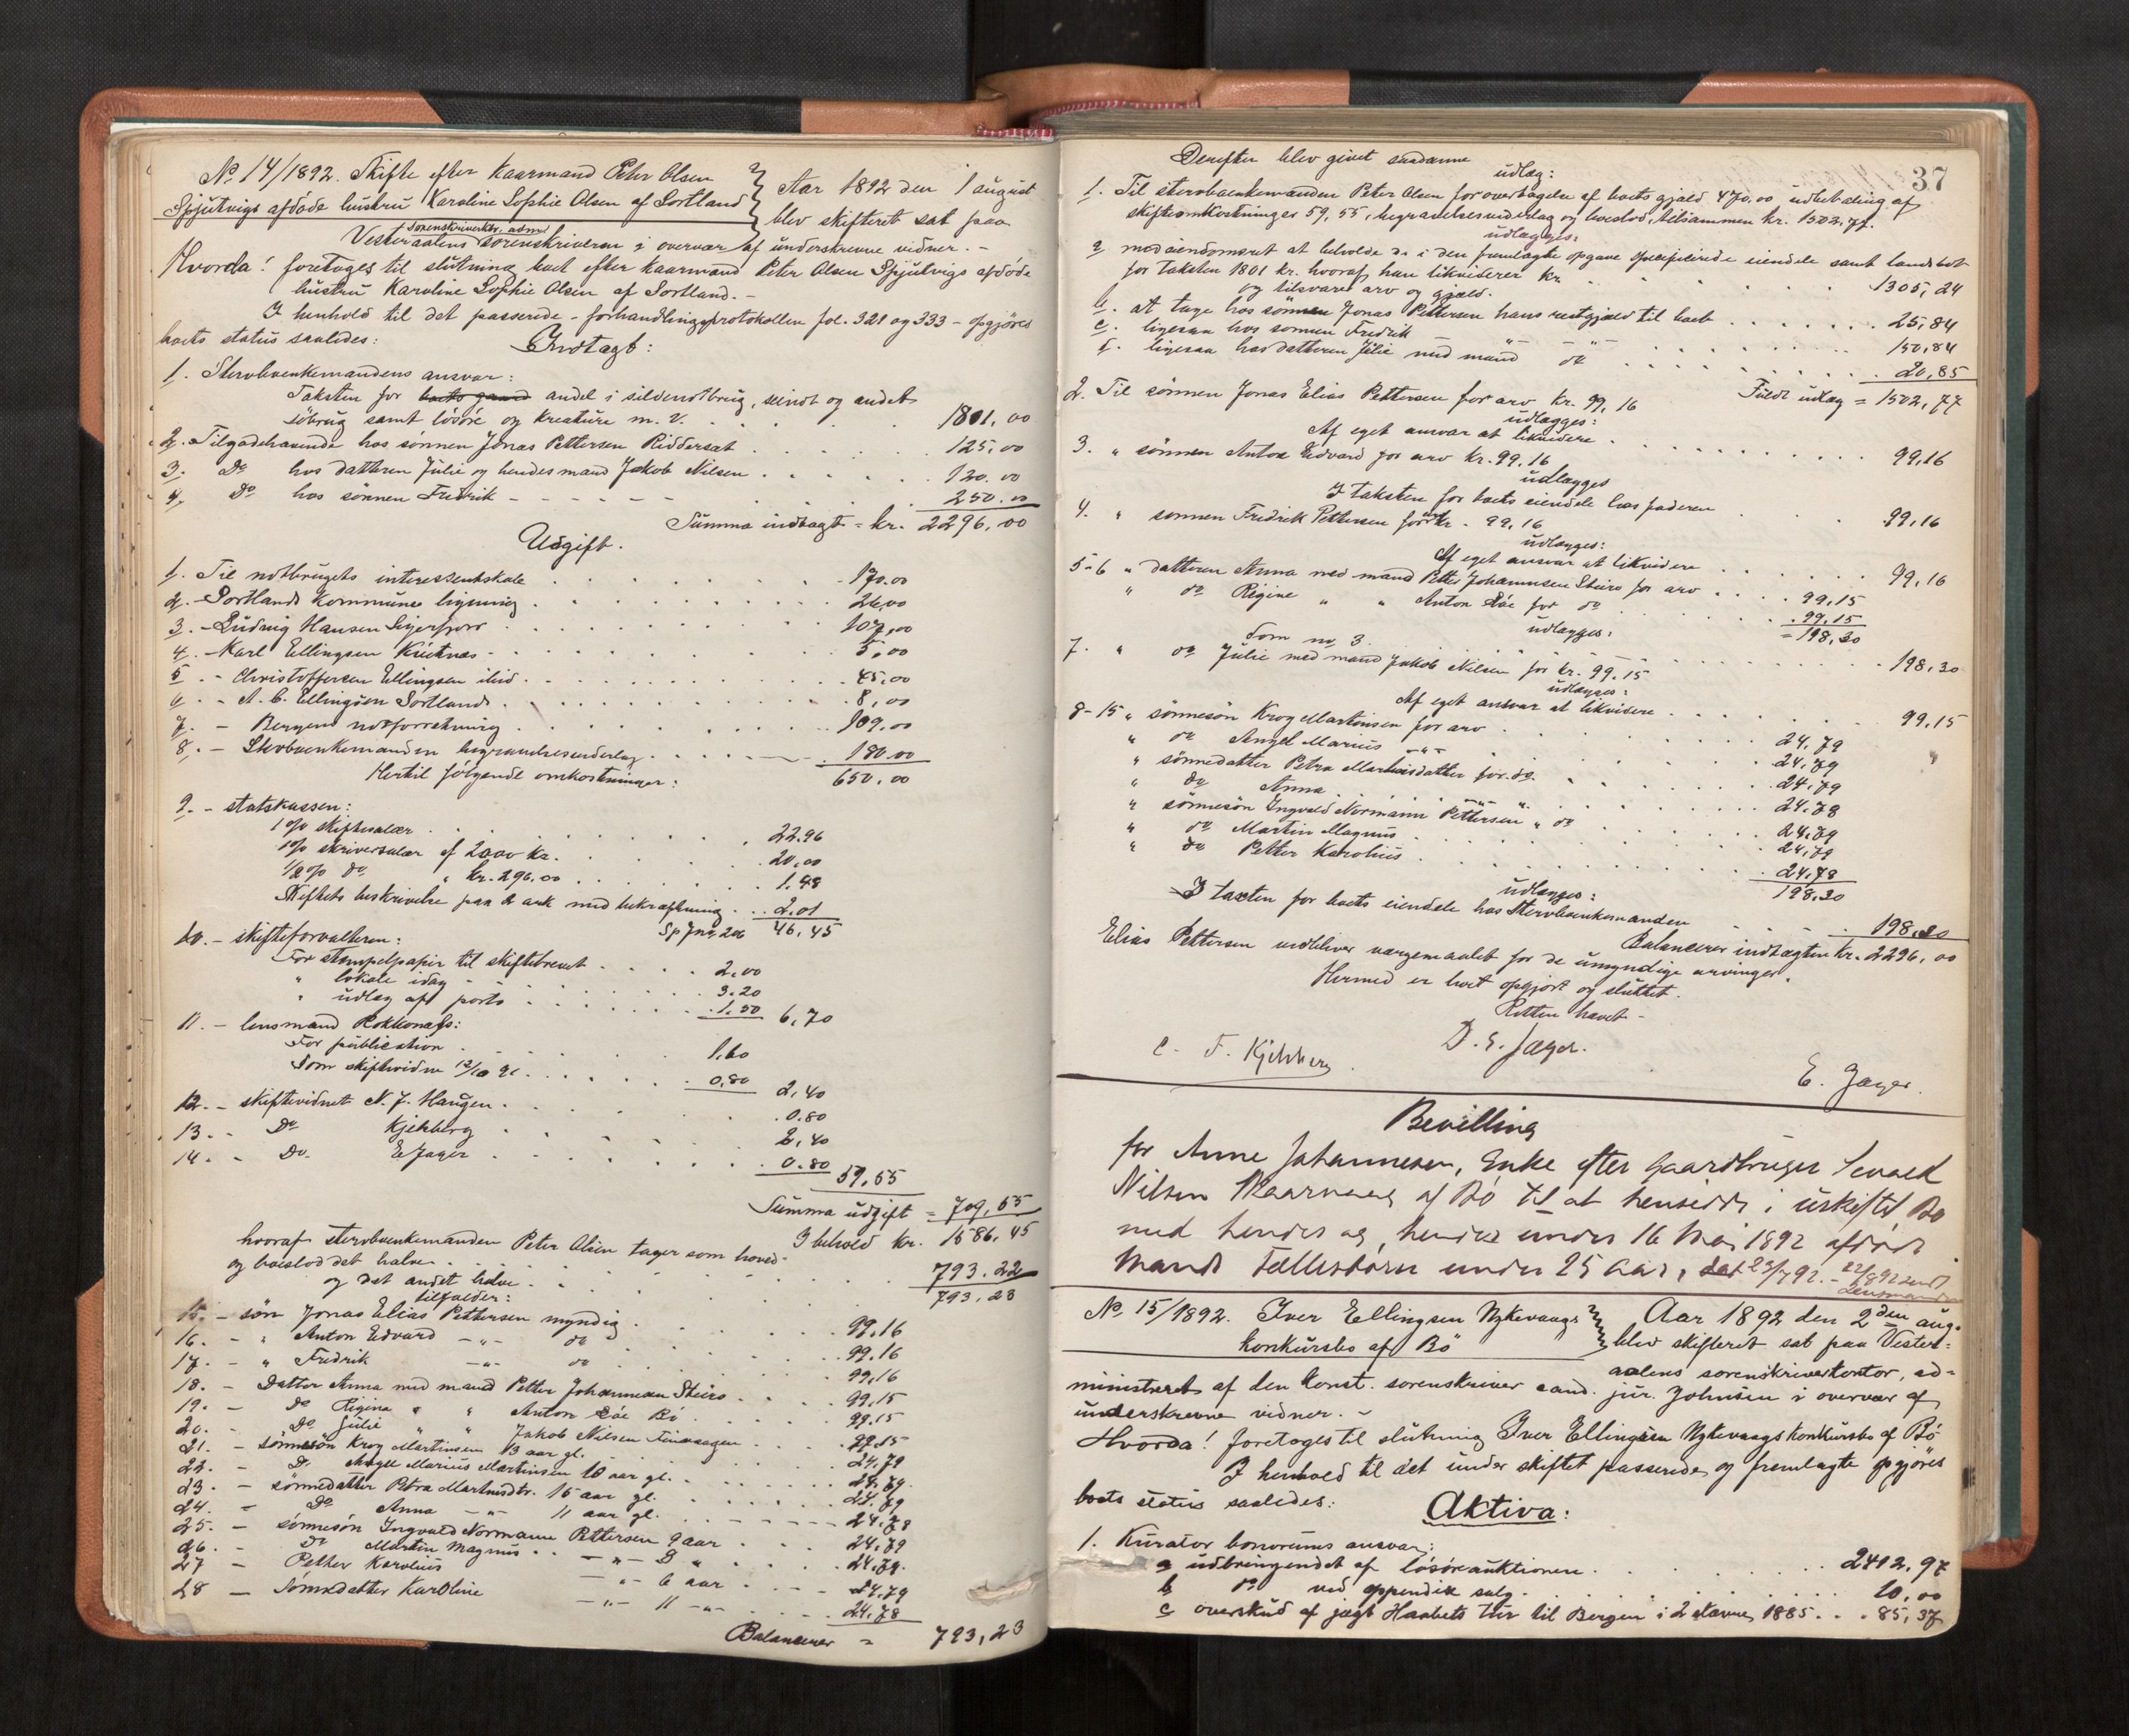 No 14/1892. Skifte efter Kaarmand Peter Olsen
Spjutvigs afdöde hustru Karoline Sophie Olsen af Sortland
Aar 1892 den 1 august
blev skifteret sat paa
Vesteraalens sorenskriverktr, adm. sorenskriveren i overvær af underskrevne vidner. -
Hvorda! foretoges til slutning boet efter Kaarmand Peter Olsen Spjutvigs afdöde
hustru Karoline Sophie Olsen af Sortland. -
I henhold til det passerede - forhandlingsprotokollen fol. 321 og 333 - opgjöres
boets status saaledes:
Indtægt:
1. Stervboenkemandens ansvar:
Taksten for boets gaard andel i sildenotbrug, seinot og andet
söbrug samt lösöre og kreature m. v. 1801,00
2. Tilgodehavende hos sönnen Jonas Pettersen Riddersæt 125,00
3. Do hos datteren Julie og hendes mand Jakob Nilsen 120.00
4. Do hos sönnen Fredrik 250.00
Summa indtægt = kr. 2296,00
Udgift.
1. Til notbrugets interessentskab 170.00
2. - Sortlands kommunes ligning 26,00
3. - Ludvig Hansen Sigerfjord 107,00
4. - Karl Ellingsen 5,00
5. - Christoffersen Ellingsen ibid. 45.00
6. - A. C. Ellingsen Sortland 8,00
7. - Bergens notforretning 109.00
8. - Stervboenkemanden begravelsesvederlag 180.00
Hertil fölgende omkostninger: 650.00
9. - statskassen:
1 o/o skiftesalær 22.96
1 o/o skriversalær af 2000 kr. 20,00
1/2 o/o do " kr. 296.00 1.48
Skiftets beskrivelse paa 2 ark med bekræftning 2.01
46,45
10. - skifteforvalteren:
For stempelpapir til skiftebrevet 2.00
" lokale idag 3.20
" udlæg af porto 1.50 6,70
11. - lensmand
For publication 1.60
Som skiftevidne 12/10 91 0.80 2,40
12. - skiftevidnet N. J. Haugen 0.80
13. - Do Kjelsberg 2,40
14. - Do E Jæger 0.80
59,55
Summa udgift = 709,55
I behold kr. 1586,45
hvoraf stervboenkemanden Peter Olsen tager som hoved-
og boeslod det halve 793.22
og det andet halve 793.23
tilfalder:
15. - sön Jonas Elias Pettersen myndig 99.16
16. - " Anton Edvard -"- do 99.16
17. - " Fredrik -"- do 99.16
18. - Datter Anna med mand Petter Johannesen Steiro 99.15
19. - Do Regine " " Anton Bö 99.15
20. - Do Julie " " Jakob Nilsen 99.15
21. - sönnesön Krog Martinsen 13 aar gl. 24.79
22. - Do Angel Marius Martinsen 10 aar gl. 24.79
23. - sönnedatter Petra Martinsdtr. 15 aar gl. 24.79
24. - Do Anna -"- 11 aar gl. 24.78
25. - sönnesön Ingvald Normann Pettersen 9 aar 24.79
26. - Do Martin Magnus -"- 8 " 24.79
27 - Petter Karolius -"- 6 aar 24.79
28 - Sönnedatter Karoline -"- 11 -"- 24.78
Balancerer = 793,23
37
Derefter blev givet saadanne
udlæg:
1. Til stervboenkemanden Peter Olsen for overtagelse af boets gjæld 470,00 udbetaling af
skifteomkostninger 59,55, begravelsesvederlag og boeslod, tilsammen kr. 1502.77.
udlægges:
a med eiendomsret at beholde de i den fremlagte opgave specificerede eiendele samt
for taksten 1801 kr. hvoraf han likviderer kr. 1305,24
og tilsvarer arv og gjæld.
b. at tage hos sönnen Jonas Pettersen hans restgjæld til boet 25,84
c. ligesaa hos sönnen Fredrik -"- -"- 150,84
d. ligesaa hos datteren Julie med mand do 20,85
Fuldt udlæg = 1502,77
2. Til sönnen Jonas Elias Pettersen for arv kr. 99,16
udlægges:
Af eget ansvar at likvidere 99,16
3. " sönnen Anton Edvard for arv kr. 99.16
udlægges
I taksten for boets eiendele hos faderen 99,16
4. " sönnen Fredrik Pettersen for arv kr. 99,16
udlægges:
Af eget ansvar at likvidere 99,16
5-6 " datteren Anna med mand Petter Johannesen Steiro for arv 99,15
" do Regine " " Anton for do 99,15
udlægges: = 198,30
Som no 3. 198,30
7. " do Julie med mand Jakob Nilsen for kr. 99.15
udlægges:
Af eget ansvar at likvidere 99,15
8-15 " sönnesön Krog Martinsen for arv 24.79
" do Angel Marius -"- 24.79
" sönnedatter Petra Martinsdatter for do 24.79
" do Anna -"- " 24.78
" sönnesön Ingvald Normann Pettersen " do 24.79
" do Martin Magnus 24.79
" do Petter Karolius 24.78
198,30
udlægges:
I taxten for boets eiendele hos Stervboenkemanden 198,30
Balancerer indtægten kr. 2296,00
Elias Pettersen vedbliver værgemaalet for de umyndige arvinger.
Hermed er boet opgjort og sluttet.
Retten hævet -
D. E. Jæger.
C. F. Kjelsberg
E. Jæger.
Bevilling
for Anne Johannesen, Enke efter Gaardbruger Sevald
Nilsen af Bö til at hensidde i uskiftet Bo
med hendes og hendes under 16 Mai 1892 afdöde
Mands Fællesbörn under 25 Aar, dat 23/7 92. -
No 15/1892. Iver Ellingsen Nykevaags
konkursbo af Bö
Aar 1892 den 2den aug.
blev skifteret sat paa Vester-
aalens sorenskriverkontor, ad-
ministreret af den konst. sorenskriver cand. jur. Johnsen i overvær af
underskrevne vidner. -
Hvorda! foretoges til slutning Iver Ellingsen Nykevaags konkursbo af Bö
I henhold til det under skiftet passerede og fremlagte opgjöres
boets status saaledes:
Aktiva:
1. Kurator bonorums ansvar:
a udbringendet af lösöreauktionen 2412,97
b do ved appendix salg 10,00
c overskud af jægt Haabets tur til Bergen i 2 stævne 1885 85,37